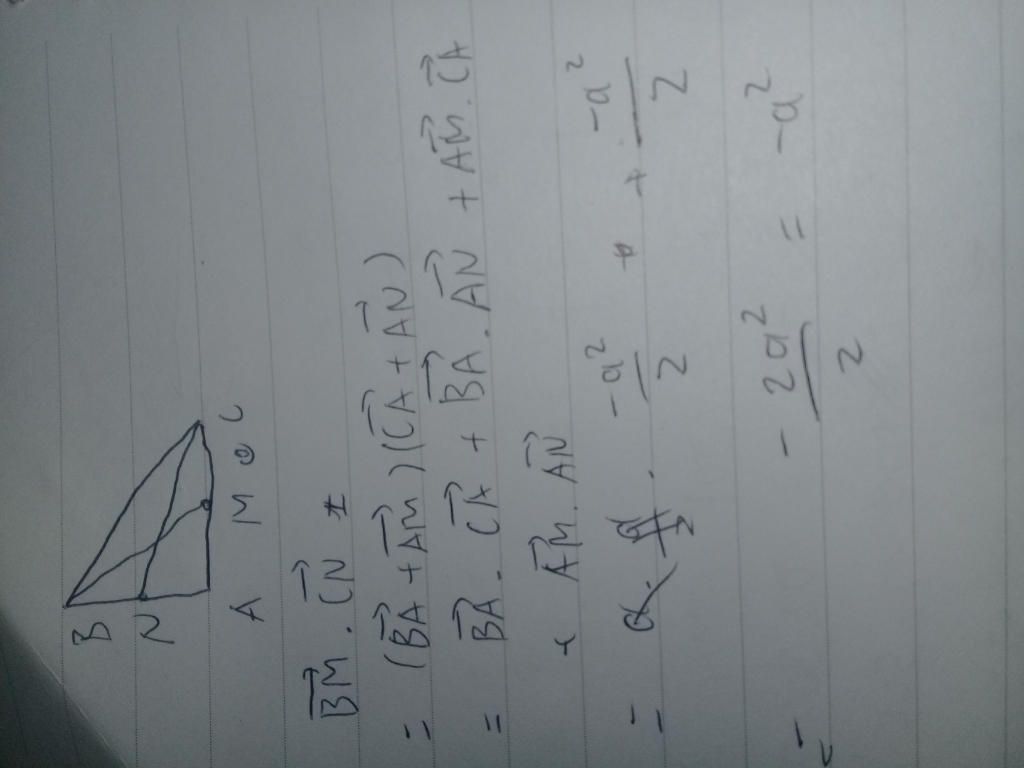 B
N
A M C
\overrightarrow{BM} . \overrightarrow{CN}
= (\overrightarrow{BA} + \overrightarrow{AM})(\overrightarrow{CA} + \overrightarrow{AN})
= \overrightarrow{BA} . \overrightarrow{CA} + \overrightarrow{BA} . \overrightarrow{AN} + \overrightarrow{AM} . \overrightarrow{CA}
+ \overrightarrow{AM} . \overrightarrow{AN}
= \frac{-a^2}{2} + \frac{-a^2}{2}
= - \frac{2a^2}{2} = -a^2